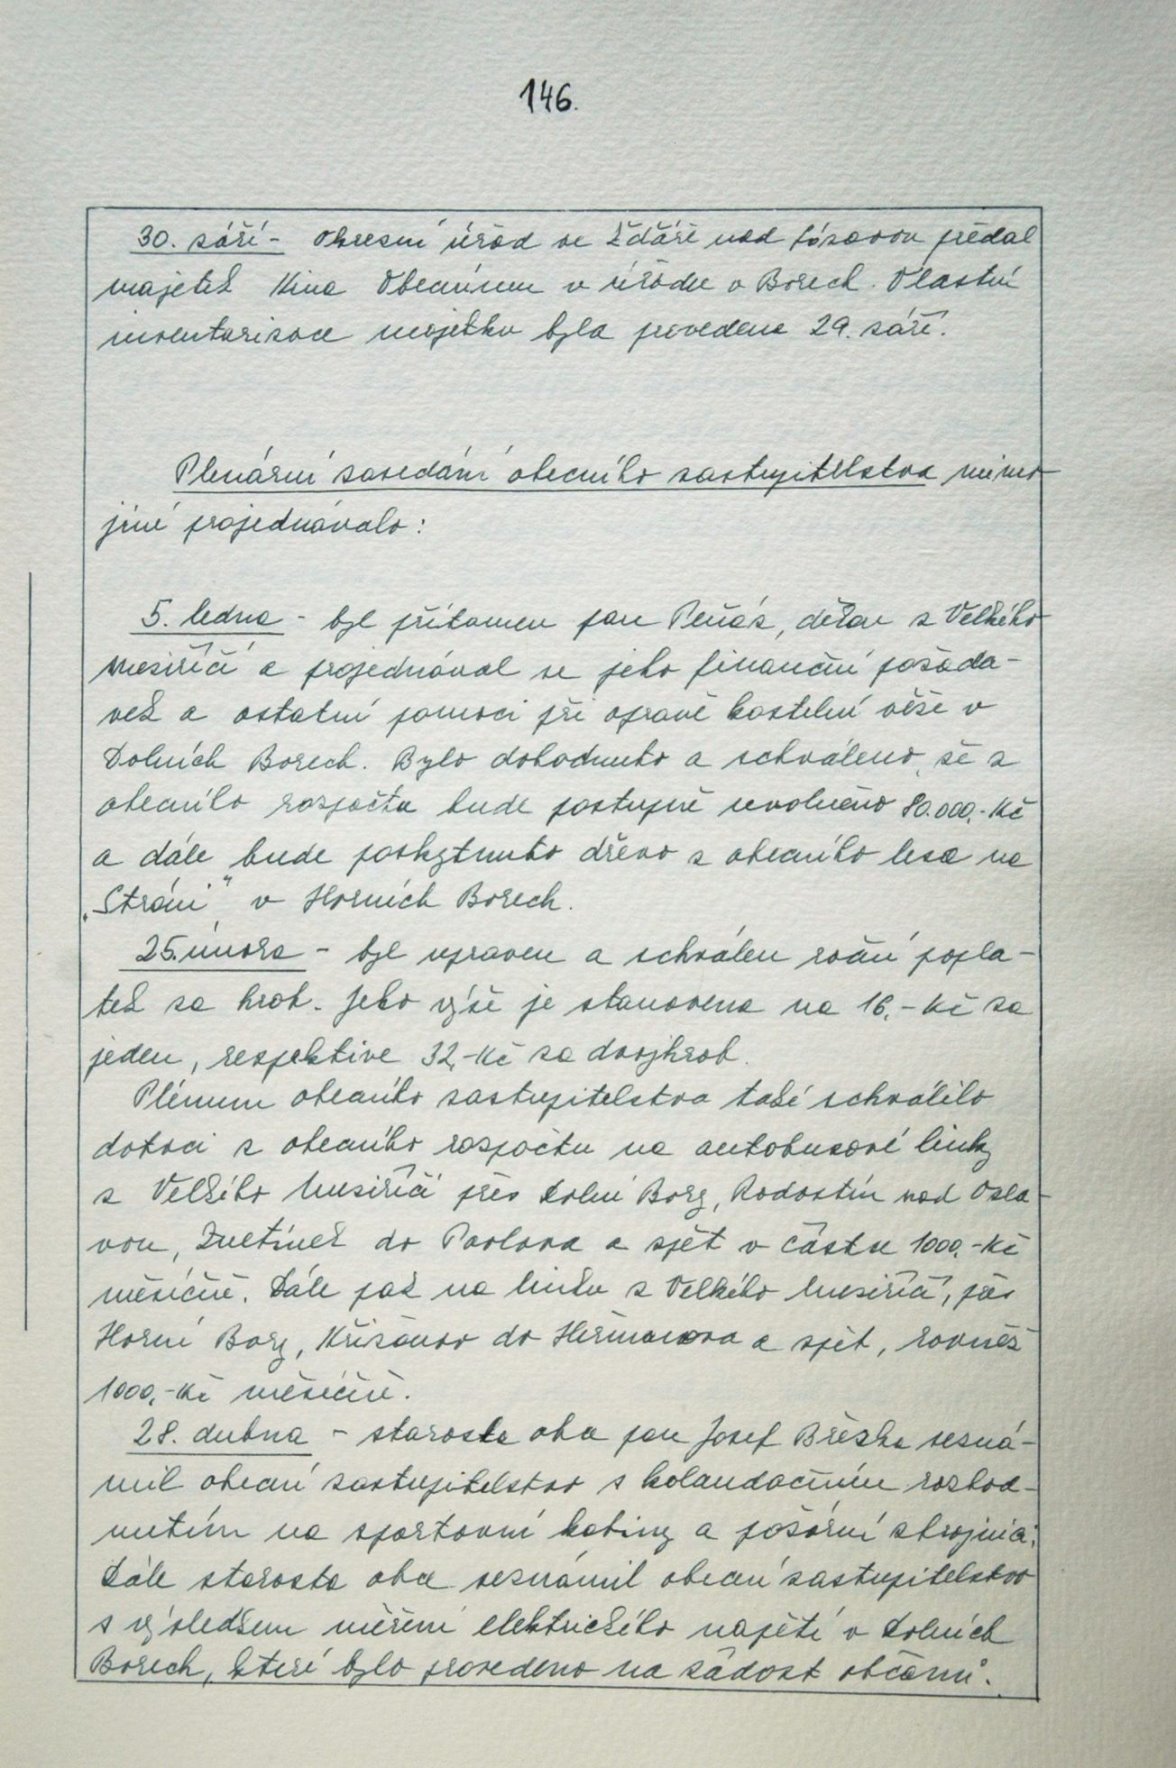 146.
30. září - Okresní úřad ve Žďáře nad Sázavou předal
majetek Kina Obecnímu v úřadu v Borech. Vlastní
inventarizace majetku byla provedena 29. září.
Plenární zasedání obecního zastupitelstva mimo
jiné projednávalo:
5. ledna - byl přítomen pan Peňáz, děkan z Velkého
Meziříčí a projednával se jeho finanční požada-
vek a ostatní pomoci při opravě kostelní věže v
Dolních Borech. Bylo dohodnuto a schváleno, že z
obecního rozpočtu bude postupně uvolněno 80.000,- Kč
a dále bude poskytnuto dřevo z obecního lesa na
„Stráni" v Horních Borech.
25. února - byl upraven a schválen roční popla-
tek za hrob. Jeho výše je stanovena na 16,- Kč za
jeden, respektive 32,- Kč za dvojhrob.
Plénum obecního zastupitelstva také schválilo
dotaci z obecního rozpočtu na autobusové linky
z Velkého Meziříčí přes Dolní Bory, Radostín nad Osla-
vou, Znětínek do Pavlova a zpět v částce 1000,- Kč
měsíčně. Dále pak na linku z Velkého Meziříčí, přes
Horní Bory, Křižanov do Heřmanova a zpět, rovněž
1000,- Kč měsíčně.
28. dubna - starosta obce pan Josef Březka sezná-
mil obecní zastupitelstvo s kolaudačním rozhod-
nutím na sportovní kabiny a požární zbrojnici.
Dále starosta obce seznámil obecní zastupitelstvo
s výsledkem měření elektrického napětí v Dolních
Borech, které bylo provedeno na žádost občanů.